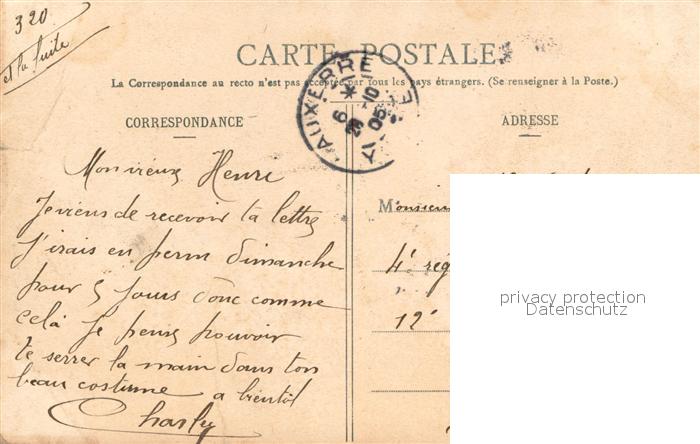 320
et la suite
CARTE POSTALE
La Correspondance au recto n'est pas acceptée par tous les pays étrangers. (Se renseigner à la Poste.)
AUXERRE
CORRESPONDANCE
ADRESSE
Mon vieux Henri
Je viens de recevoir ta lettre
J'irais en perm dimanche
pour 5 jours donc comme
cela je pense pouvoir
te serrer la main dans ton
beau costume a bientôt
Charly
Monsieur
4e rég
12e
privacy protection
Datenschutz